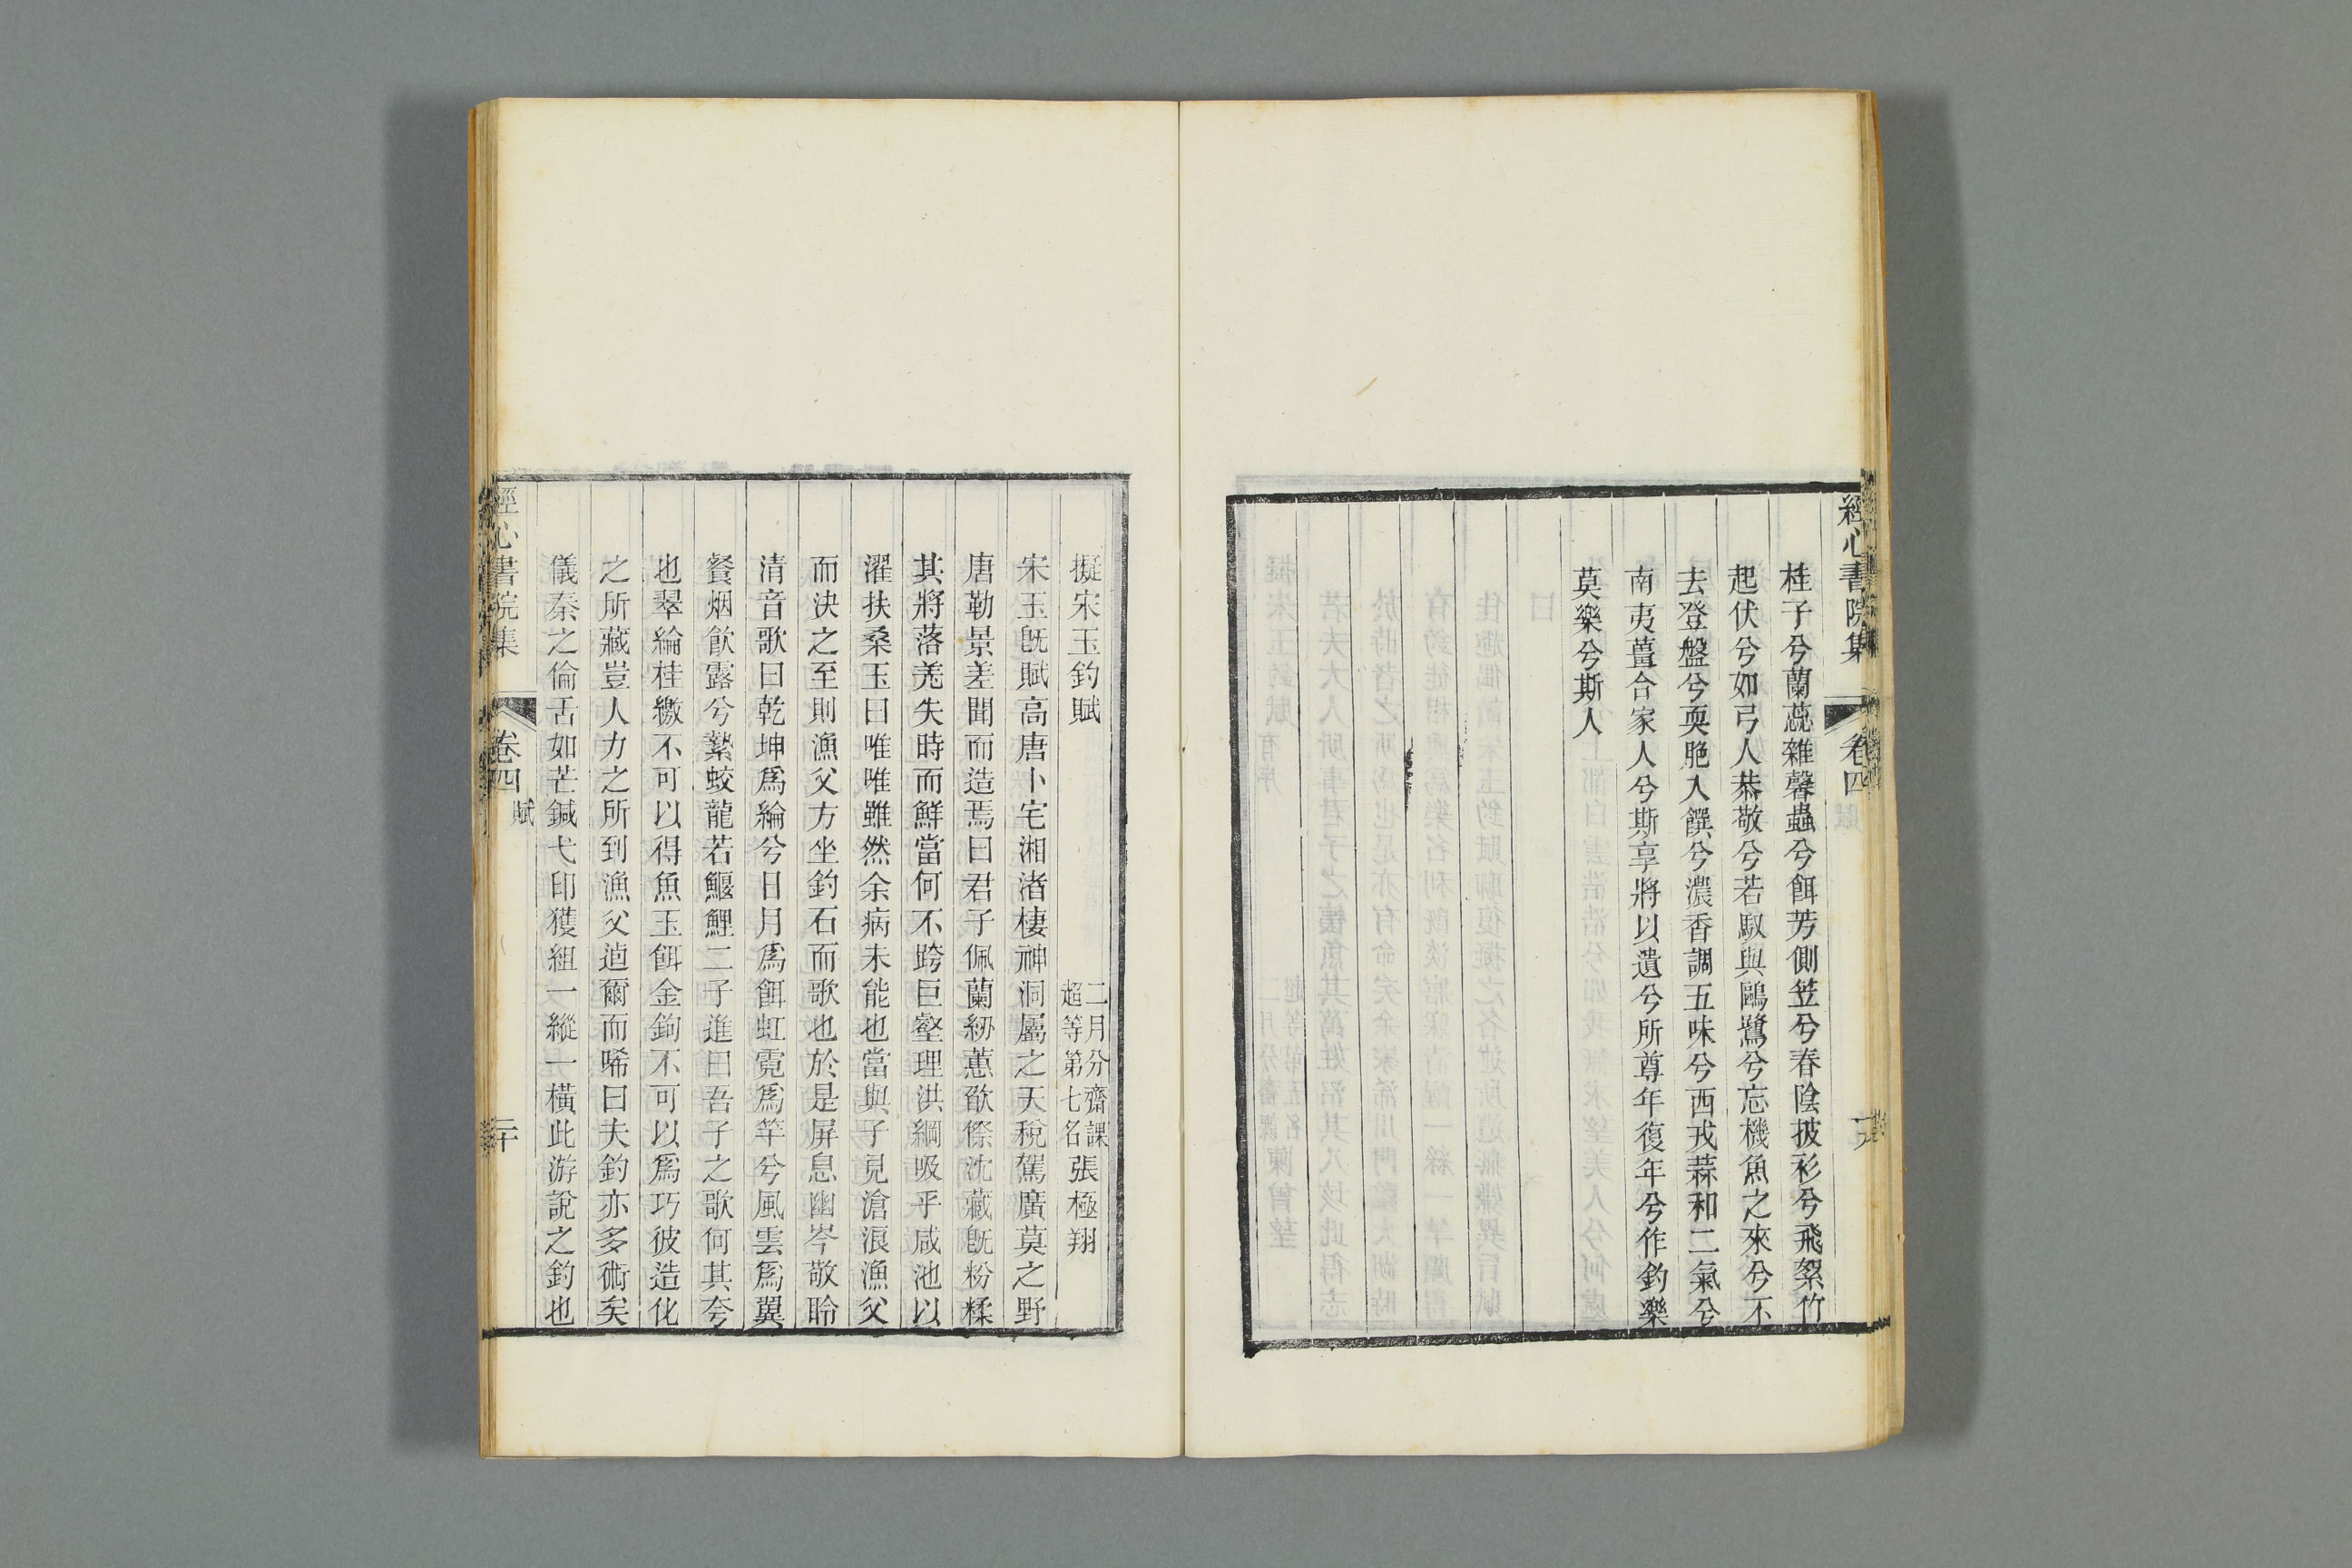 經心書院集 卷四
桂子兮蘭蕊雜馨蟲兮餌芳側笠兮春陰披衫兮飛絮竹
起伏兮如弓人恭敬兮若馭與鷗鷺兮忘機魚之來兮不
去登盤兮耎脆入饌兮濃香調五味兮西戎蒜和二氣兮
南夷薑合家人兮斯享將以遺兮所尊年復年兮作釣樂
莫樂兮斯人
擬宋玉釣賦 二月分齋課超等第七名 張極翔
宋玉旣賦高唐卜宅湘渚棲神洞屬之天稅駕廣莫之野
唐勒景差聞而造焉曰君子佩蘭紉蕙欿傺沈藏旣粉糅
其將落羌失時而鮮當何不跨巨壑理洪綱吸乎咸池以
濯扶桑玉曰唯唯雖然余病未能也當與子見滄浪漁父
而決之至則漁父方坐釣石而歌也於是屏息幽岑敬聆
清音歌曰乾坤爲綸兮日月爲餌虹霓爲竿兮風雲爲翼
餐烟飮露兮縶蛟龍若鰋鯉二子進曰吾子之歌何其夸
也翠綸桂繳不可以得魚玉餌金鉤不可以爲巧彼造化
之所藏豈人力之所到漁父逌爾而唏曰夫釣亦多術矣
儀秦之倫舌如芒鍼弋印獲組一縱一橫此游說之釣也
經心書院集 卷四 賦 二十